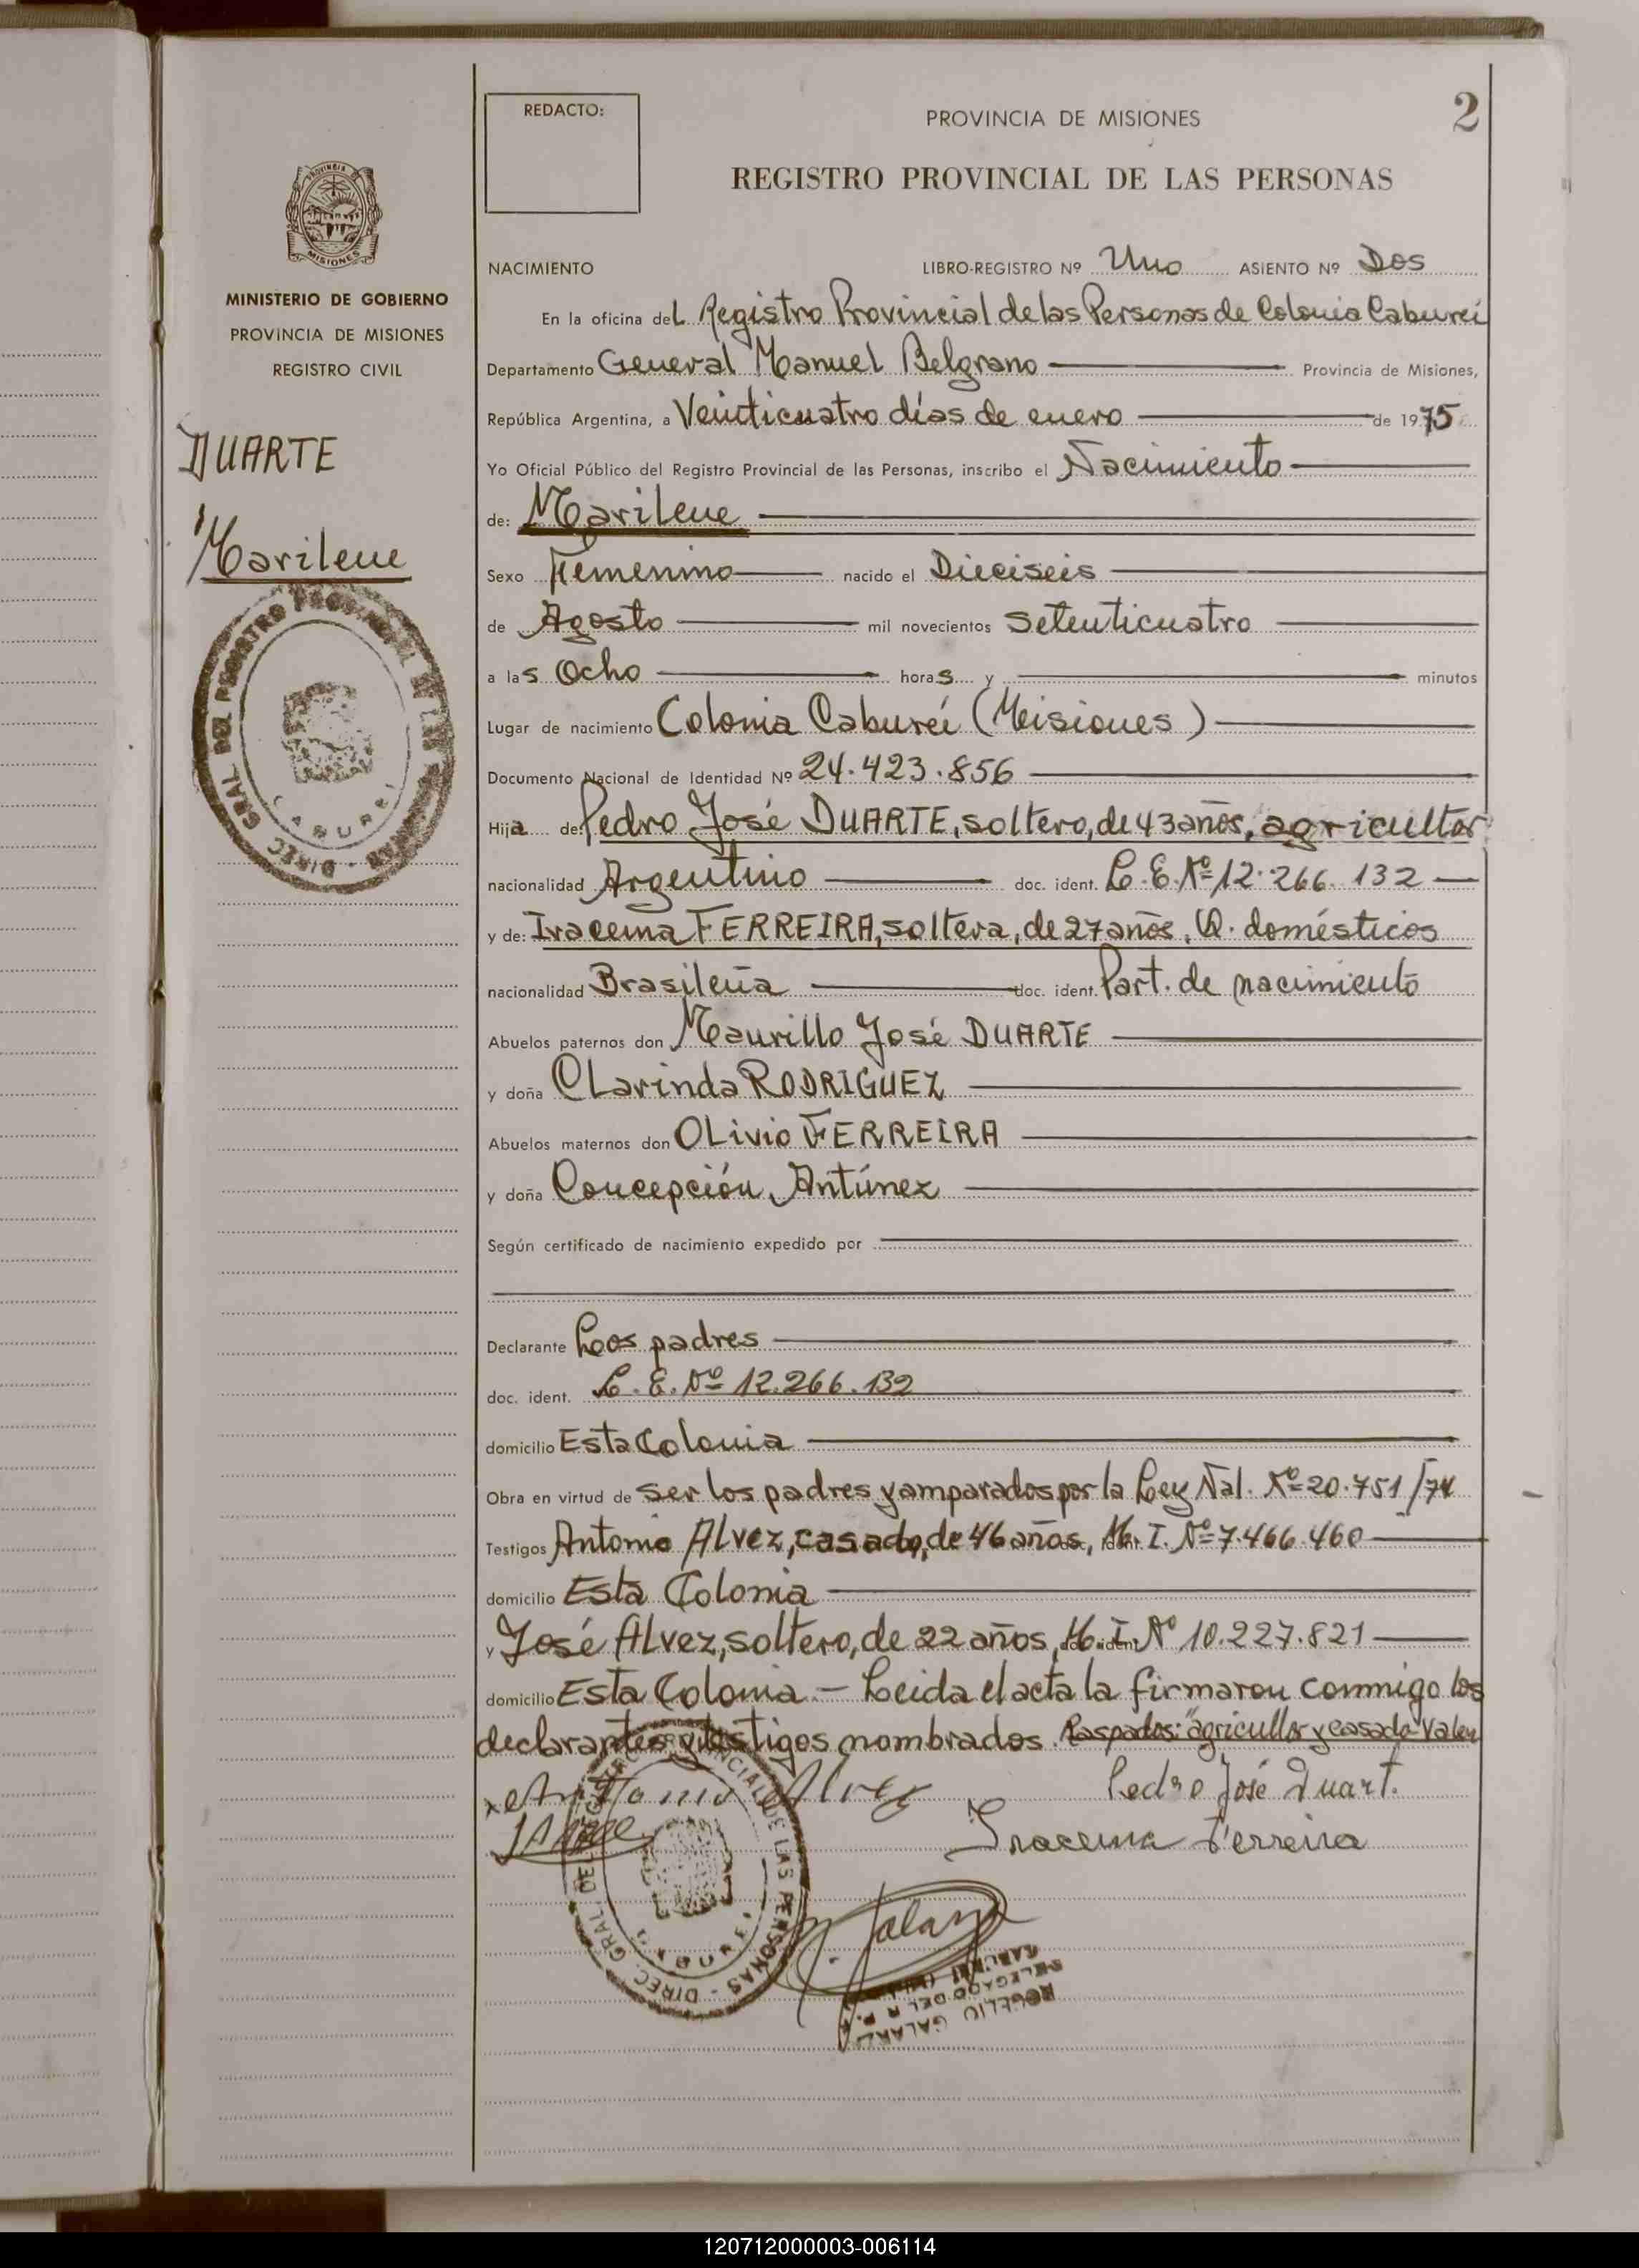 REDACTO:
PROVINCIA DE MISIONES
2
REGISTRO PROVINCIAL DE LAS PERSONAS
MISIONES
MINISTERIO DE GOBIERNO
PROVINCIA DE MISIONES
REGISTRO CIVIL
DUARTE
Marilene
DIREC. GRAL. DEL REGISTRO PROVINCIAL DE LAS PERSONAS
CABUREI
NACIMIENTO LIBRO-REGISTRO Nº Uno ASIENTO Nº Dos
En la oficina deL Registro Provincial de las Personas de Colonia Caburei
Departamento General Manuel Belgrano Provincia de Misiones,
República Argentina, a Veinticuatro días de enero de 1975
Yo Oficial Público del Registro Provincial de las Personas, inscribo el Nacimiento
de: Marilene
Sexo Femenino nacido el Dieciseis
de Agosto mil novecientos setenticuatro
a las Ocho horas y minutos
Lugar de nacimiento Colonia Cabureí (Misiones)
Documento Nacional de Identidad Nº 24.423.856
Hija de: Pedro José DUARTE, soltero, de 43 años, agricultor
nacionalidad Argentino doc. ident. L.E.Nº 12.266.132
y de: Iracema FERREIRA, soltera, de 27 años, Q. domésticos
nacionalidad Brasileña doc. ident. Part. de nacimiento
Abuelos paternos don Maurillo José DUARTE
y doña CLarinda RODRIGUEZ
Abuelos maternos don OLivio FERREIRA
y doña Concepción Antúnez
Según certificado de nacimiento expedido por
Declarante Los padres
doc. ident. L.E.Nº 12.266.132
domicilio Esta Colonia
Obra en virtud de ser los padres y amparados por la Ley Nal. Nº 20.751/74
Testigos Antonio Alvez, casado, de 46 años, M.I.Nº 7.466.460
domicilio Esta Colonia
y José Alvez, soltero, de 22 años, M.I. Nº 10.227.821
domicilio Esta Colonia.- Leida el acta la firmaron conmigo los
declarantes y testigos nombrados. Raspados: "agricultor y casado" Valen
Antonio Alvez Pedro José Duart.
Iracema Ferreira
DIREC. GRAL. DEL REGISTRO PROVINCIAL DE LAS PERSONAS
CABUREI
ROGELIO GALARZA
DELEGADO DEL R. P.